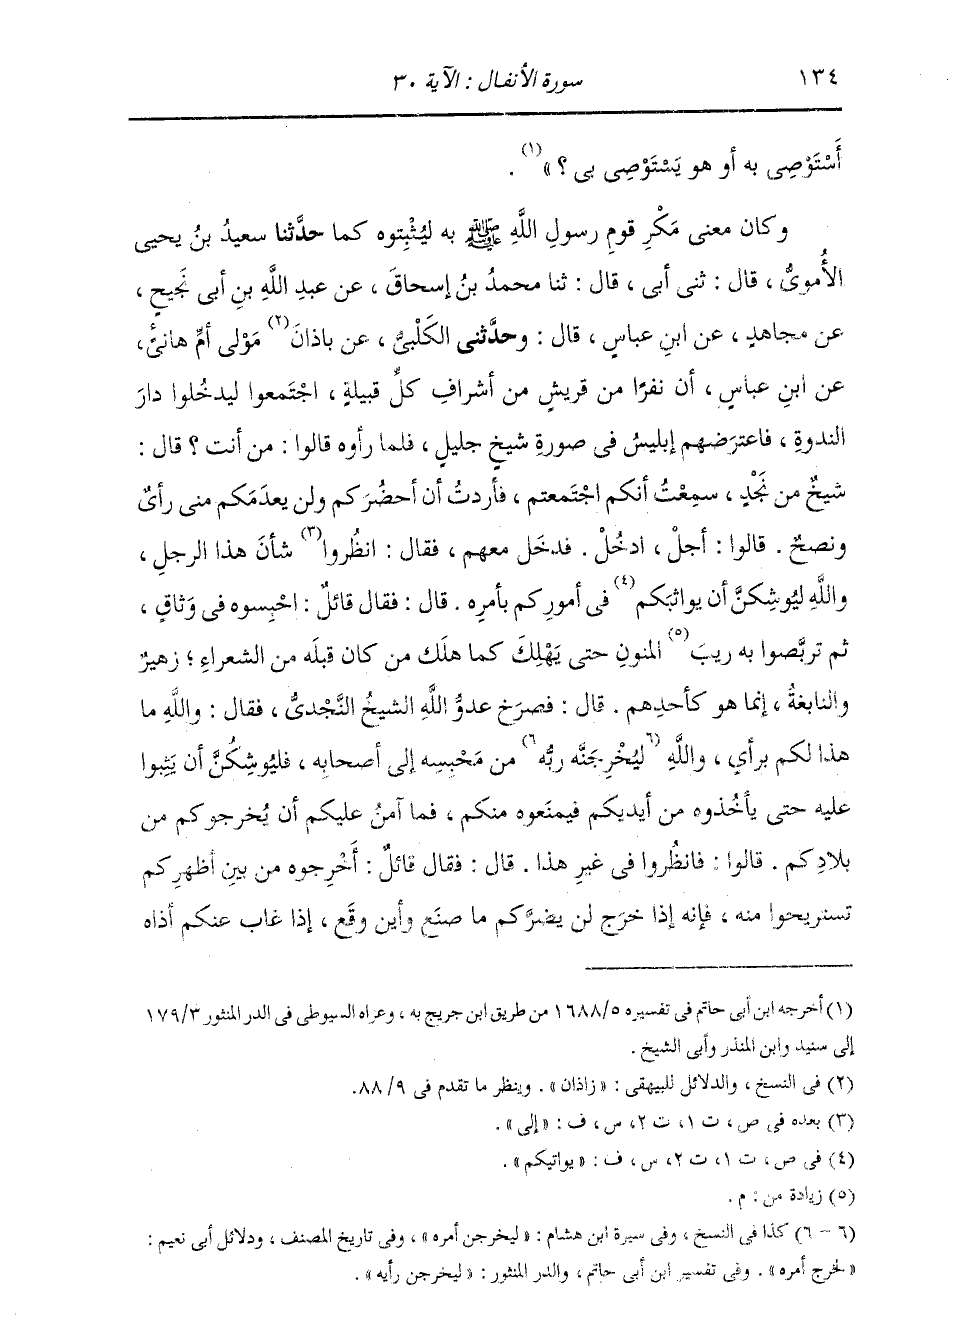 ١٣٤ سورة الأنفال : الآية ٣٠
أَسْتَوْصِى به أو هو يَسْتَوْصِى بى ؟ »(١) .
وكان معنى مَكْرِ قومِ رسولِ اللَّهِ ﷺ به ليُثْبِتوه كما حدَّثنا سعيدُ بنُ يحيى
الأُموىُّ ، قال : ثنى أبى ، قال : ثنا محمدُ بنُ إسحاقَ ، عن عبدِ اللَّهِ بنِ أبى نَجيحٍ ،
عن مجاهدٍ ، عن ابنِ عباسٍ ، قال : وحدَّثنى الكَلْبىُّ ، عن باذانَ(٢) مَوْلى أمِّ هانئٍ ،
عن ابنِ عباسٍ ، أن نفرًا من قريشٍ من أشرافِ كلِّ قبيلةٍ ، اجْتَمعوا ليدخُلوا دارَ
الندوةِ ، فاعترَضهم إبليسُ فى صورةِ شيخٍ جليلٍ ، فلما رأوه قالوا : من أنت ؟ قال :
شيخٌ من نَجْدٍ ، سمِعْتُ أنكم اجْتَمعتم ، فأردتُ أن أحضُرَكم ولن يعدَمَكم منى رأىٌ
ونصحٌ . قالوا : أجلْ ، ادخُلْ . فدخَل معهم ، فقال : انظُروا(٣) شأنَ هذا الرجلِ ،
واللَّهِ ليُوشِكنَّ أن يواثبَكم(٤) فى أمورِكم بأمرِه . قال : فقال قائلٌ : احْبِسوه فى وَثاقٍ ،
ثم تربَّصوا به ريبَ(٥) المنونِ حتى يَهْلِكَ كما هلَك من كان قبلَه من الشعراءِ ؛ زهيرٌ
والنابغةُ ، إنما هو كأحدِهم . قال : فصرَخ عدوُّ اللَّهِ الشيخُ النَّجْدىُّ ، فقال : واللَّهِ ما
هذا لكم برأىٍ ، واللَّهِ (٦)ليُخْرِجَنَّه ربُّه(٦) من مَحْبِسِه إلى أصحابِه ، فليُوشِكُنَّ أن يَثِبوا
عليه حتى يأخُذوه من أيديكم فيمنَعوه منكم ، فما آمنُ عليكم أن يُخرجوكم من
بلادِكم . قالوا : فانظُروا فى غيرِ هذا . قال : فقال قائلٌ : أَخْرِجوه من بينِ أظهرِكم
تستريحوا منه ، فإنه إذا خرَج لن يضرَّكم ما صنَع وأين وقَع ، إذا غاب عنكم أذاه
(١) أخرجه ابن أبى حاتم فى تفسيره ١٦٨٨/٥ من طريق ابن جريج به ، وعزاه السيوطى فى الدر المنثور ١٧٩/٣
إلى سنيد وابن المنذر وأبى الشيخ .
(٢) فى النسخ ، والدلائل للبيهقى : « زاذان » . وينظر ما تقدم فى ٨٨/٩.
(٣) بعده فى ص ، ت ١، ت ٢، س ، ف : « إلى » .
(٤) فى ص ، ت ١، ت ٢، س ، ف : « يواتيكم » .
(٥) زيادة من : م .
(٦ - ٦) كذا فى النسخ ، وفى سيرة ابن هشام : « ليخرجن أمره » ، وفى تاريخ المصنف ، ودلائل أبى نعيم :
« لخرج أمره » . وفى تفسير ابن أبى حاتم ، والدر المنثور : « ليخرجن رأيه » .